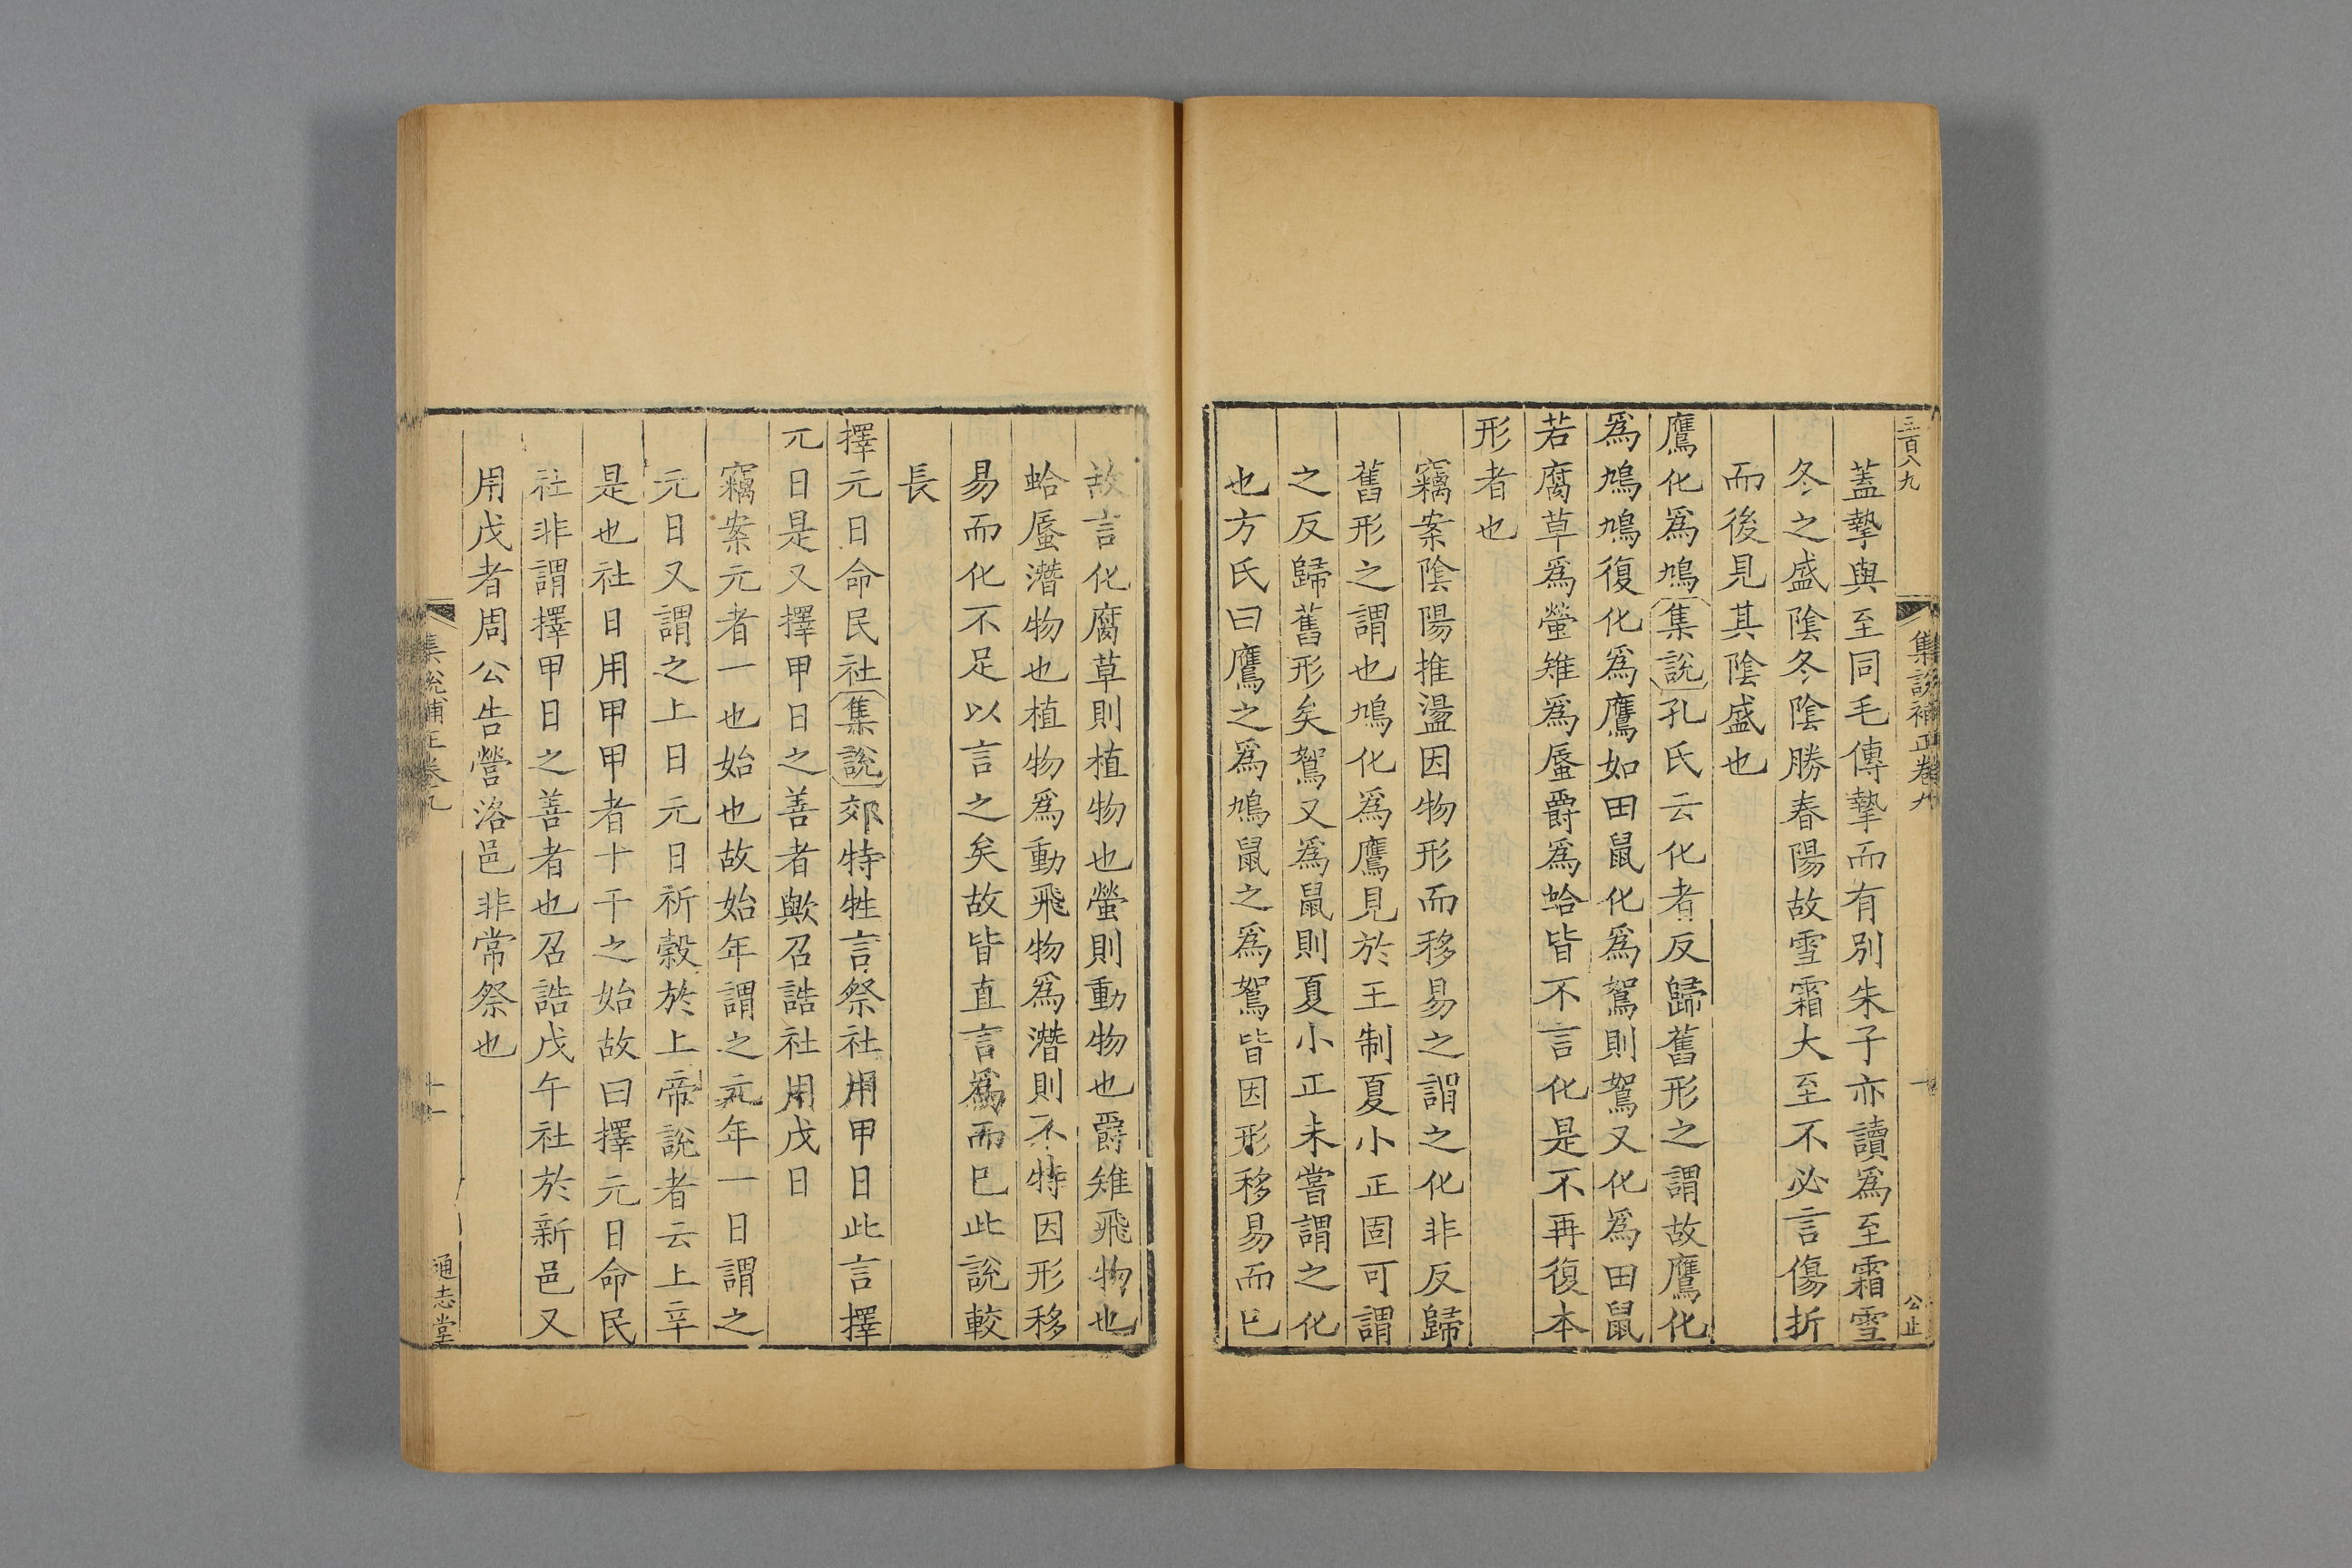 三百八九
集說補正卷九
十
公止
蓋摯與至同毛傳摯而有別朱子亦讀爲至霜雪
冬之盛陰冬陰勝春陽故雪霜大至不必言傷折
而後見其陰盛也
鷹化爲鳩集說孔氏云化者反歸舊形之謂故鷹化
爲鳩鳩復化爲鷹如田鼠化爲鴽則鴽又化爲田鼠
若腐草爲螢雉爲蜃爵爲蛤皆不言化是不再復本
形者也
竊案陰陽推盪因物形而移易之謂之化非反歸
舊形之謂也鳩化爲鷹見於王制夏小正固可謂
之反歸舊形矣鴽又爲鼠則夏小正未嘗謂之化
也方氏曰鷹之爲鳩鼠之爲鴽皆因形移易而已
故言化腐草則植物也螢則動物也爵雉飛物也
蛤蜃潛物也植物爲動飛物爲潛則不特因形移
易而化不足以言之矣故皆直言爲而已此說較
長
擇元日命民社集說郊特牲言祭社用甲日此言擇
元日是又擇甲日之善者歟召誥社用戊日
竊案元者一也始也故始年謂之元年一日謂之
元日又謂之上日元日祈穀於上帝說者云上辛
是也社日用甲甲者十干之始故曰擇元日命民
社非謂擇甲日之善者也召誥戊午社於新邑又
用戊者周公告營洛邑非常祭也
集說補正卷九
十一
通志堂